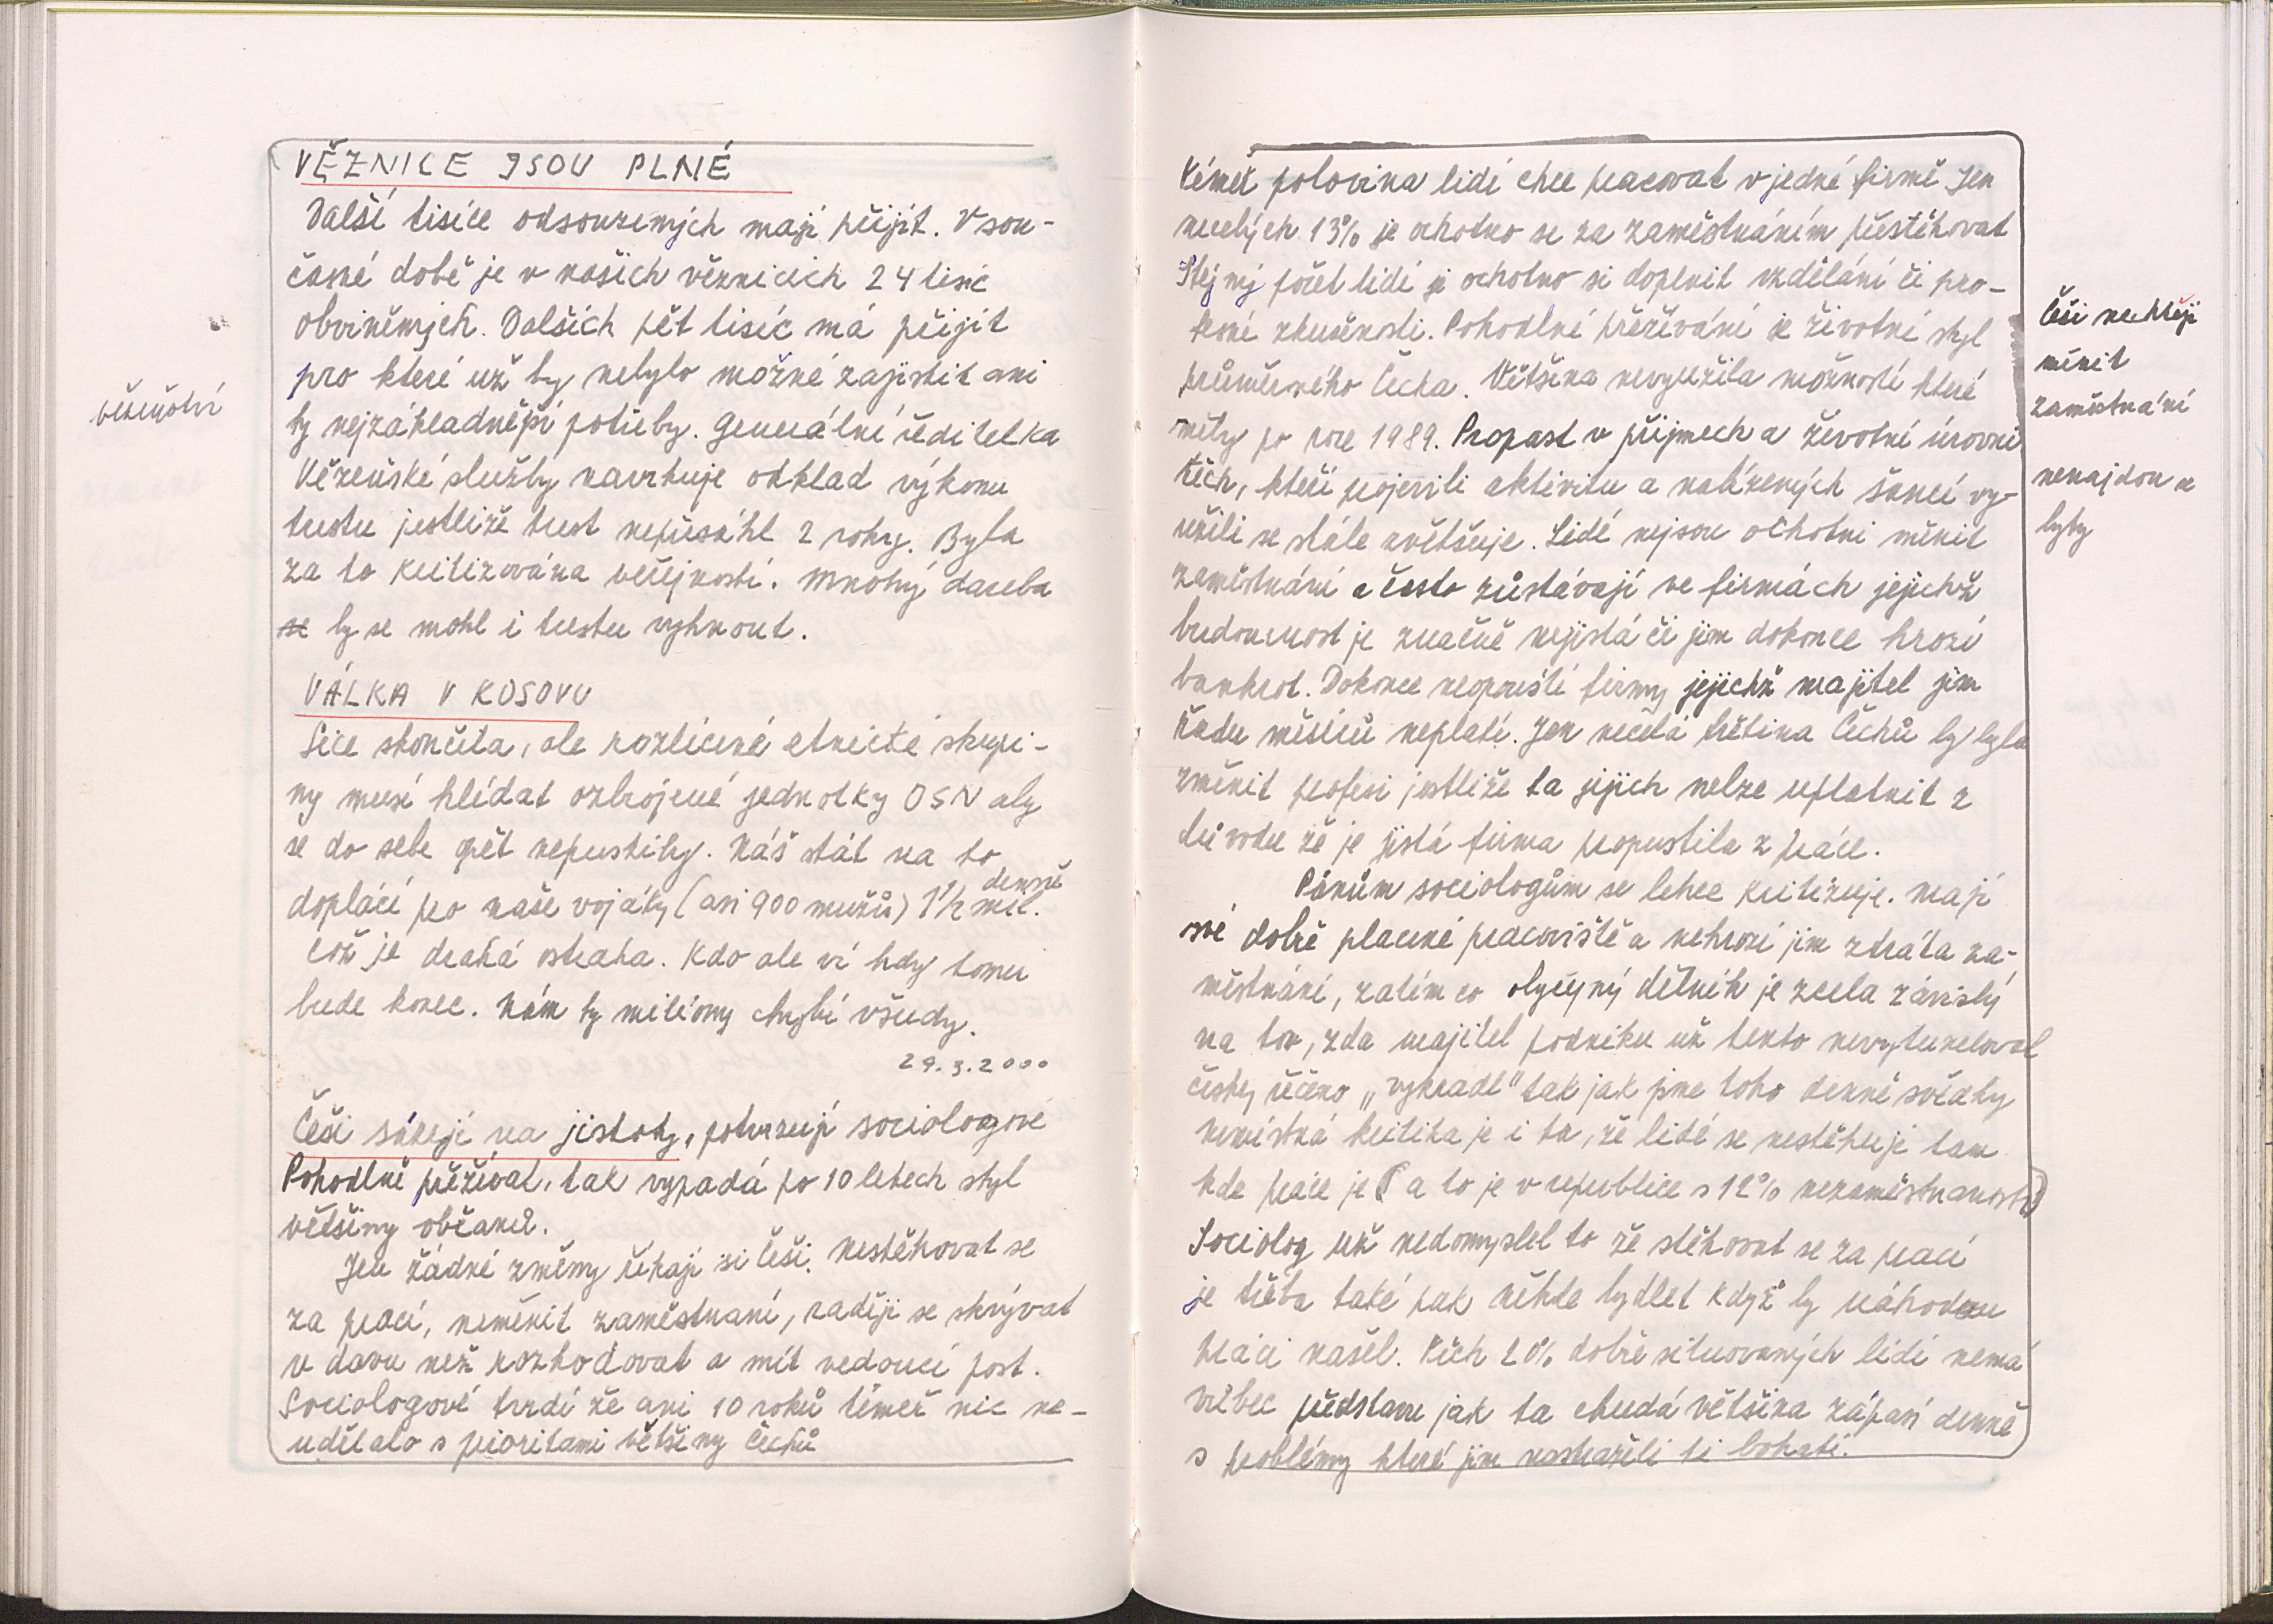 VĚZNICE JSOU PLNÉ
Další tisíce odsouzených mají přijít. V sou-
časné době je v našich věznicích 24 tisíc
obviněných. Dalších pět tisíc má přijít
pro které už by nebylo možné zajistit ani
ty nejzákladnější potřeby. Generální ředitelka
Vězeňské služby navrhuje odklad výkonu
trestu jestliže trest nepřesáhl 2 roky. Byla
za to kritizována veřejností. Mnohý dareba
se by se mohl i trestu vyhnout.
vězeňství
VÁLKA V KOSOVU
Sice skončila, ale rozlícené etnické skupi-
ny musí hlídat ozbrojené jednotky OSN aby
se do sebe opět nepustily. Náš stát na to
doplácí pro naše vojáky (asi 900 mužů) 1 1/2 mil. denně
což je drahá ostraha. Kdo ale ví kdy tomu
bude konec. Nám ty milióny chybí všudy.
29.3.2000
Češi sázejí na jistoty, potvrzují sociologové
Pohodlně přežívat, tak vypadá po 10 letech styl
většiny občanů.
Jen žádné změny říkají si Češi. Nestěhovat se
za prací, neměnit zaměstnaní, raději se skrývat
v davu než rozhodovat a mít vedoucí post.
Sociologové tvrdí že ani 10 roků téměř nic ne-
udělalo s prioritami většiny Čechů
Téměř polovina lidí chce pracovat v jedné firmě Jen
necelých 13% je ochotno se za zaměstnáním přestěhovat
Stejný počet lidí je ochotno si doplnit vzdělání či pro-
fesní zkušenosti. Pohodlné přežívání je životní styl
průměrného Čecha. Většina nevyužila možností které
měly po roce 1989. Propast v příjmech a životní úrovni
těch, kteří projevili aktivitu a nabízených šancí vy-
užili se stále zvětšuje. Lidé nejsou ochotni měnit
zaměstnání a často zůstávají ve firmách jejichž
budoucnost je značně nejistá či jim dokonce hrozí
bankrot. Dokonce neopouští firmy jejichž majitel jim
řadu měsíců neplatí. Jen necelá třetina Čechů by byla
změnit profesi jestliže ta jejich nelze uplatnit z
důvodu že je jistá firma propustila z práce.
Pánům sociologům se lehce kritizuje. Mají
své dobře placené pracoviště a nehrozí jim ztráta za-
městnání, zatím co obyčejný dělník je zcela závislý
na tom, zda majitel podniku už tento nevytuneloval
česky řečeno „vykradl" tak jak jsme toho denně svědky
nemístná kritika je i ta, že lidé se nestěhují tam
kde práce je (a to je v republice s 12% nezaměstnanosti)
Sociolog už nedomyslel to že stěhovat se za prací
je třeba také pak někde bydlet když by náhodou
práci našel. Těch 20% dobře situovaných lidí nemá
vůbec představu jak ta chudá většina zápasí denně
s problémy které jim nastražili ti bohatí.
Češi nechtějí
měnit
zaměstnání
nenajdou se
byty